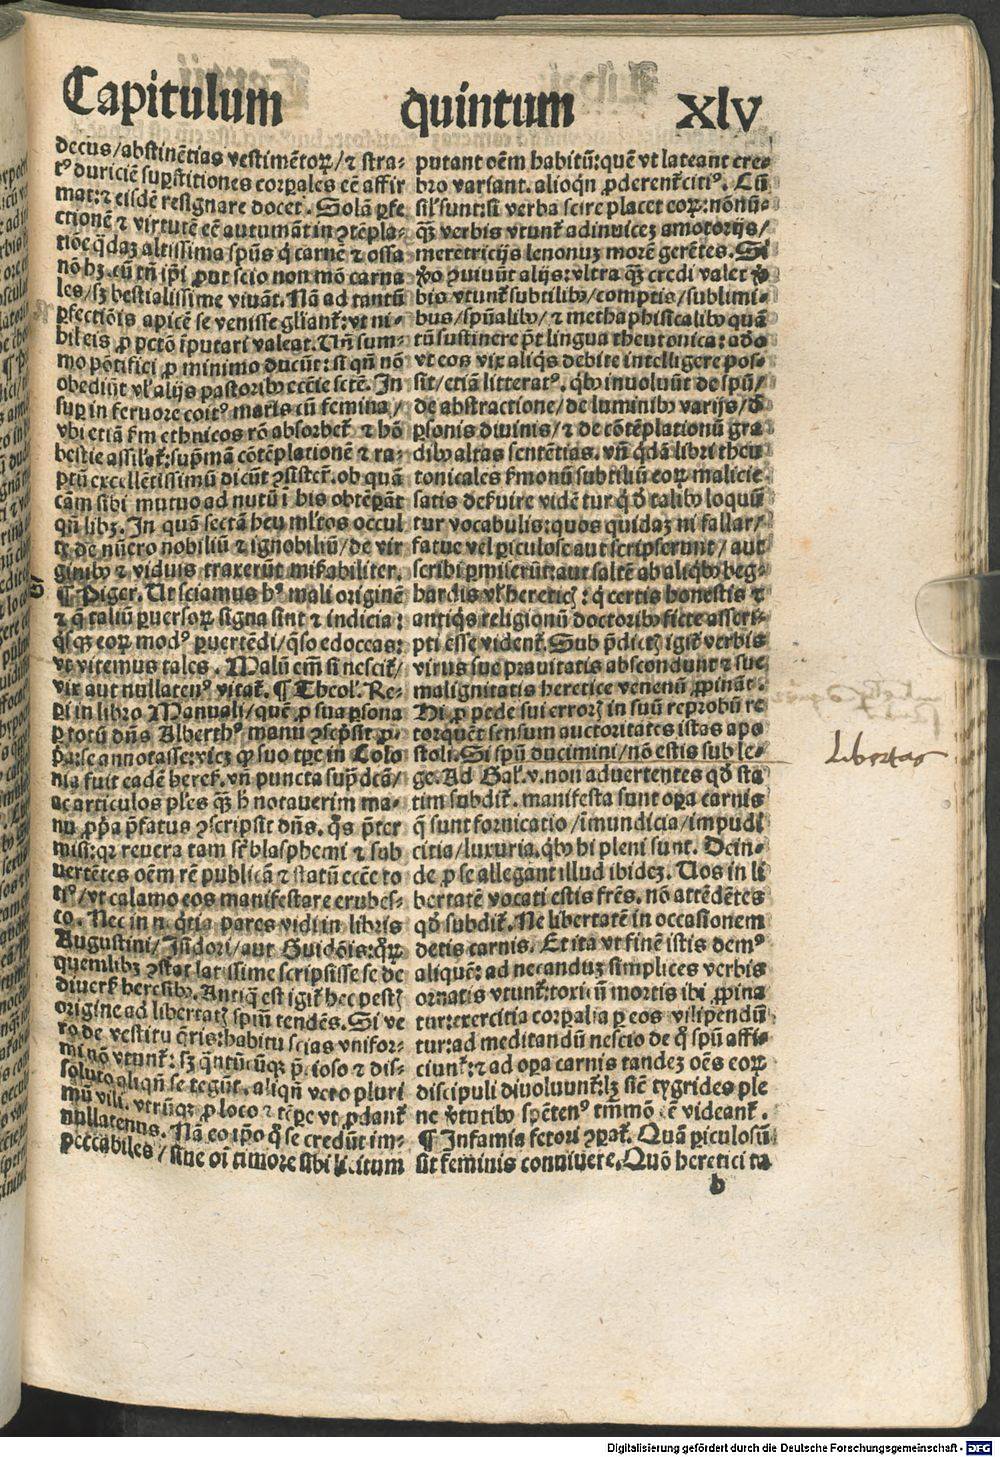 Capitulum quintum Xlv
decus/abstinẽtias vestimẽtoꝝ/⁊ stra-
tꝰ duriciẽ suꝑstitiones corꝑales eẽ affir
mat: ⁊ eisdẽ resignare docet. Solã ꝑfe
ctionẽ ⁊ virtutẽ eẽ autumãt in ꝯtẽpla-
tiõe q̃daz altissima spũs q̃ carnẽ ⁊ ossa
nõ hꝫ. cũ tñ ip̃i ꝓut scio non mõ carna
les/sꝫ bestialissime viuãt. Nã ad tantũ
ꝑfectiõis apicẽ se venisse gliant᷑: vt ni-
bil eis ꝓ pctõ ĩputari valeat. Uñ sum-
mo põtifici ꝓ minimo ducũt: si qñ nõ
obediũt vl᷑ alijs pastoribꝰ eccĩe sctẽ. In
suꝑ in feruore coitꝰ maris cũ femina/
vbi etiã ẜm ethnicos rõ absorbet᷑ ⁊ hõ
bestie assil᷑at᷑: sup̃mã cõtẽplationẽ ⁊ ra-
ptũ excellẽtissimũ dicũt ꝯsister̃. ob quã
cãm sibi mutuo ad nutũ ĩ bis obtẽꝑãt
qñ libꝫ. In quã sectã heu ml᷑tos occul
te de nũero nobiliũ ⁊ ignobiliũ/de vir
ginibꝰ ⁊ viduis traxerũt miẜabiliter.
¶ Piger. Ut sciamus hꝰ mali originẽ
⁊ q̃ taliũ ꝑuersoꝝ signa sint ⁊ indicia:
q̃sqꝫ eoꝝ modꝰ ꝑuertẽdi/q̃so edoceas:
vt vitemus tales. Malũ em̃ si nescit᷑/
vix aut nullatenꝰ vitat᷑. ¶ Theol᷑. Re-
ꝑi in libro Manuali/quẽ ꝓ sua ꝑsona
ꝑ totũ dñs Albertꝰ manu ꝯscp̃sit ꝓ-
p̃a: se annotasse: vicꝫ ꝙ suo tꝑe in Colo
nia fuit eadẽ heres. vñ puncta sup̃dcã/
ac articulos ꝑl᷑es qꝫ h̃ notauerim ma-
nu ꝓp̃a p̃fatus ꝯscripsit dñs. q̃s p̃ter
misi: qꝛ reuera tam sũt blasphemi ⁊ sub
vertẽtes oẽm rẽ publicã ⁊ statũ eccẽe to
tiꝰ/vt calamo eos manifestare erubes-
co. Nec in n. q̃tia pares vidi in libris
Augustini/Isidori/aut Guidõis: q̃ꝝ
quemlibꝫ ꝯstat latissime scripsisse se de
diuers᷑ heresibꝰ. Antiq̃ est igit᷑ hec pestꝭ
origine ad libertatꝭ spũm tendẽs. Si ve
ro de vestitu q̃ris: habitu scias vnifor-
mi nõ vtunt᷑: sꝫ q̃ntũcũqꝫ p̃cioso ⁊ dis-
soluto aliqñ se tegũt. aliqñ vero pluri
mũ vili. vtrũqꝫ ꝓ loco ⁊ tẽꝑe vt ꝓdant᷑
nullatenus. Nã eo ip̃o q̃ se credũt im-
peccabiles/siue oĩ timore sibi licitum
putant oẽm habitũ: quẽ vt lateant cre-
bro variant. alioq̃n ꝓderent᷑ citiꝰ. Cũ
sil᷑ sunt: si verba scire placet eoꝝ: nõnũ-
qꝫ verbis vtunt᷑ adinuicẽ amotorijs/
meretricijs lenonuꝫ morẽ gerẽtes. Si
ꝟo ꝯuiuũt alijs: vltra qꝫ credi valet ꝟ
bis vtunt᷑ subtilibꝰ/comptis/sublimi-
bus/spũalibꝰ/⁊ methaphisicalibꝰ quã
tũ sustinere põt lingua theutonica: adeo
vt eos vix aliq̃s debite intelligere pos-
sit/etiã litteratꝰ. q̃bꝰ inuoluũt de spũ/
de abstractione/de luminibꝰ varijs/de
ꝑsonis diuinis/⁊ de cõtẽplationũ gra
dibꝰ altas sentẽtias. vñ q̃dã libri theu
tonicales ẜmonũ subtiliũ eoꝝ malicie
satis deẜuire videntur q̃ d̃ talibꝰ loquũ
tur vocabulis: quos quidaz ni fallar/
fatue vel ꝑiculose aut scripserunt/aut
scribi ꝑmiserũt: aut saltẽ ab aliq̃bꝰ beg-
hardis vl᷑ hereticꝭ: q̃ certis honestis ⁊
antiq̃s religionũ doctoribꝰ ficte asseri-
pti esse vident᷑. Sub p̃dictꝭ igit᷑ verbis
virus sue prauitatis abscondunt ⁊ sue
malignitatis heretice venenũ ꝓpinãt.
Hi ꝓ pede sui errorꝭ in suũ reprobũ re
torquẽt sensum auctoritates istas apo
stoli. Si spũ ducimini/nõ estis sub le-
ge. Ad Gal᷑. v. non aduertentes qd̃ sta
tim subdit᷑. manifesta sunt oꝑa carnis
q̃ sunt fornicatio/ĩmundicia/impudi
citia/luxuria. q̃bꝰ hi pleni sunt. Dein-
de ꝓ se allegant illud ibidẽ. Uos in li
bertatẽ vocati estis fr̃es. nõ attẽdẽtes
qd̃ subdit᷑. Ne libertatẽ in occasionem
detis carnis. Et ita vt finẽ istis demꝰ
aliquẽ: ad necanduꝫ simplices verbis
ornatis vtunt᷑: toxicũ mortis ibi ꝓpina
tur: exercitia corꝑalia ꝑ eos vilipendũ
tur: ad meditandũ nescio de q̃ spũ affi-
ciunt᷑: ⁊ ad oꝑa carnis tandeꝫ oẽs eoꝝ
discipuli diuoluunt᷑: lꝫ sic̃ tygrides ple
ne ꝟtutibꝰ spẽtenꝰ tm̃mõ eẽ videant᷑.
¶ Infamis fetori ꝯꝑat᷑. Quã ꝑiculosũ
sit feminis conuiuere. Quõ heretici ta
b
Libertas
Digitalisierung gefördert durch die Deutsche Forschungsgemeinschaft - DFG